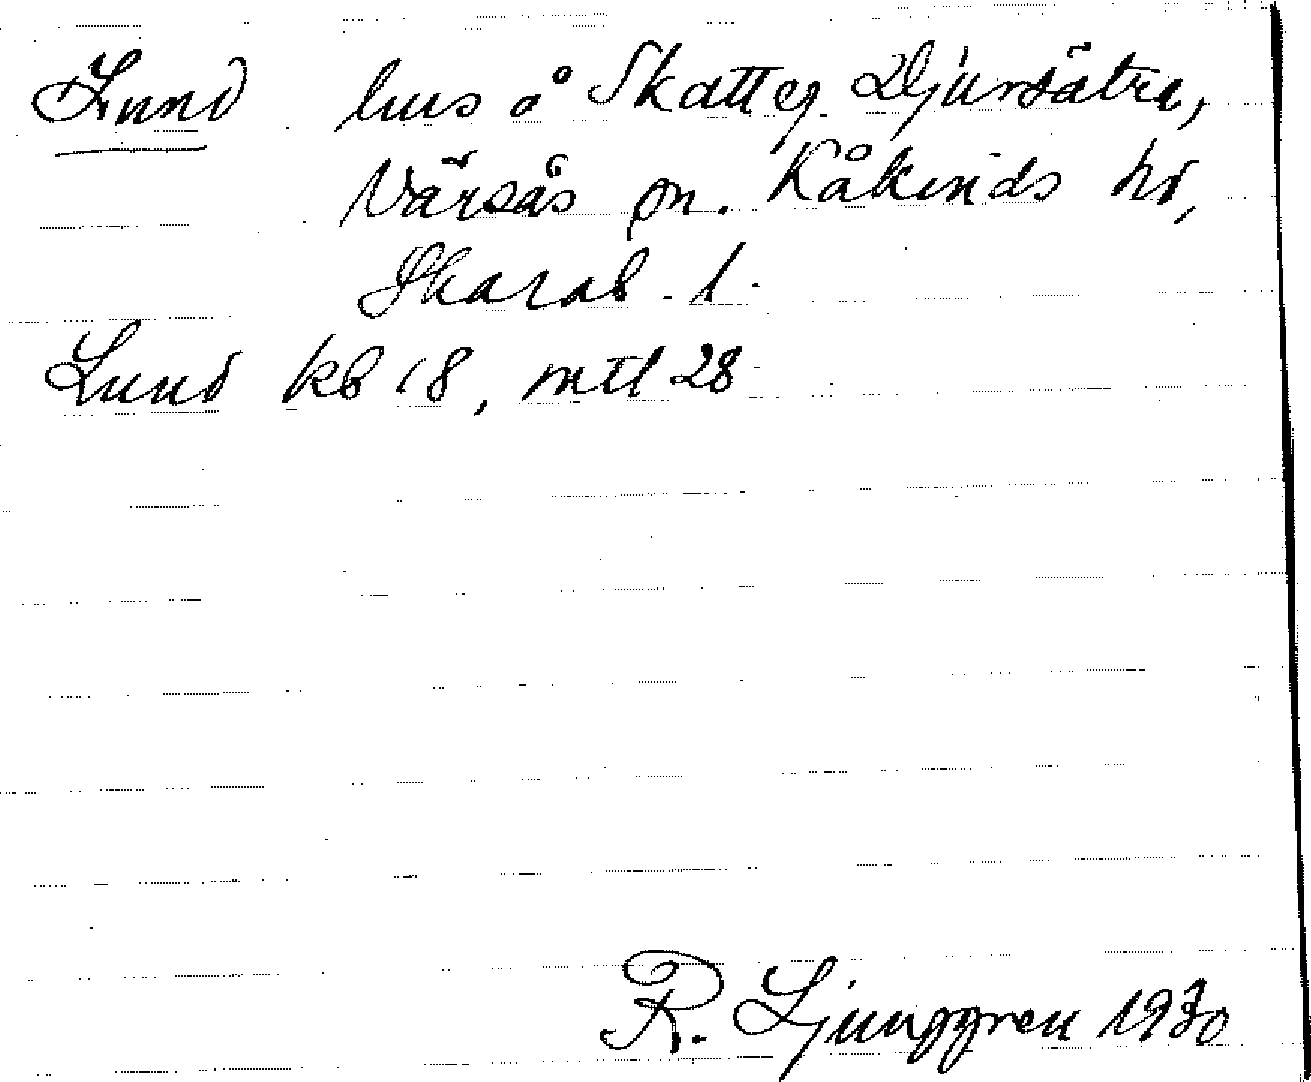 Lund hus å Skatteg. Djursätra,
Värsås sn. Kåkinds hd,
Skarab. l.
Lund kb 18, mtl 28
R. Ljunggren 1930